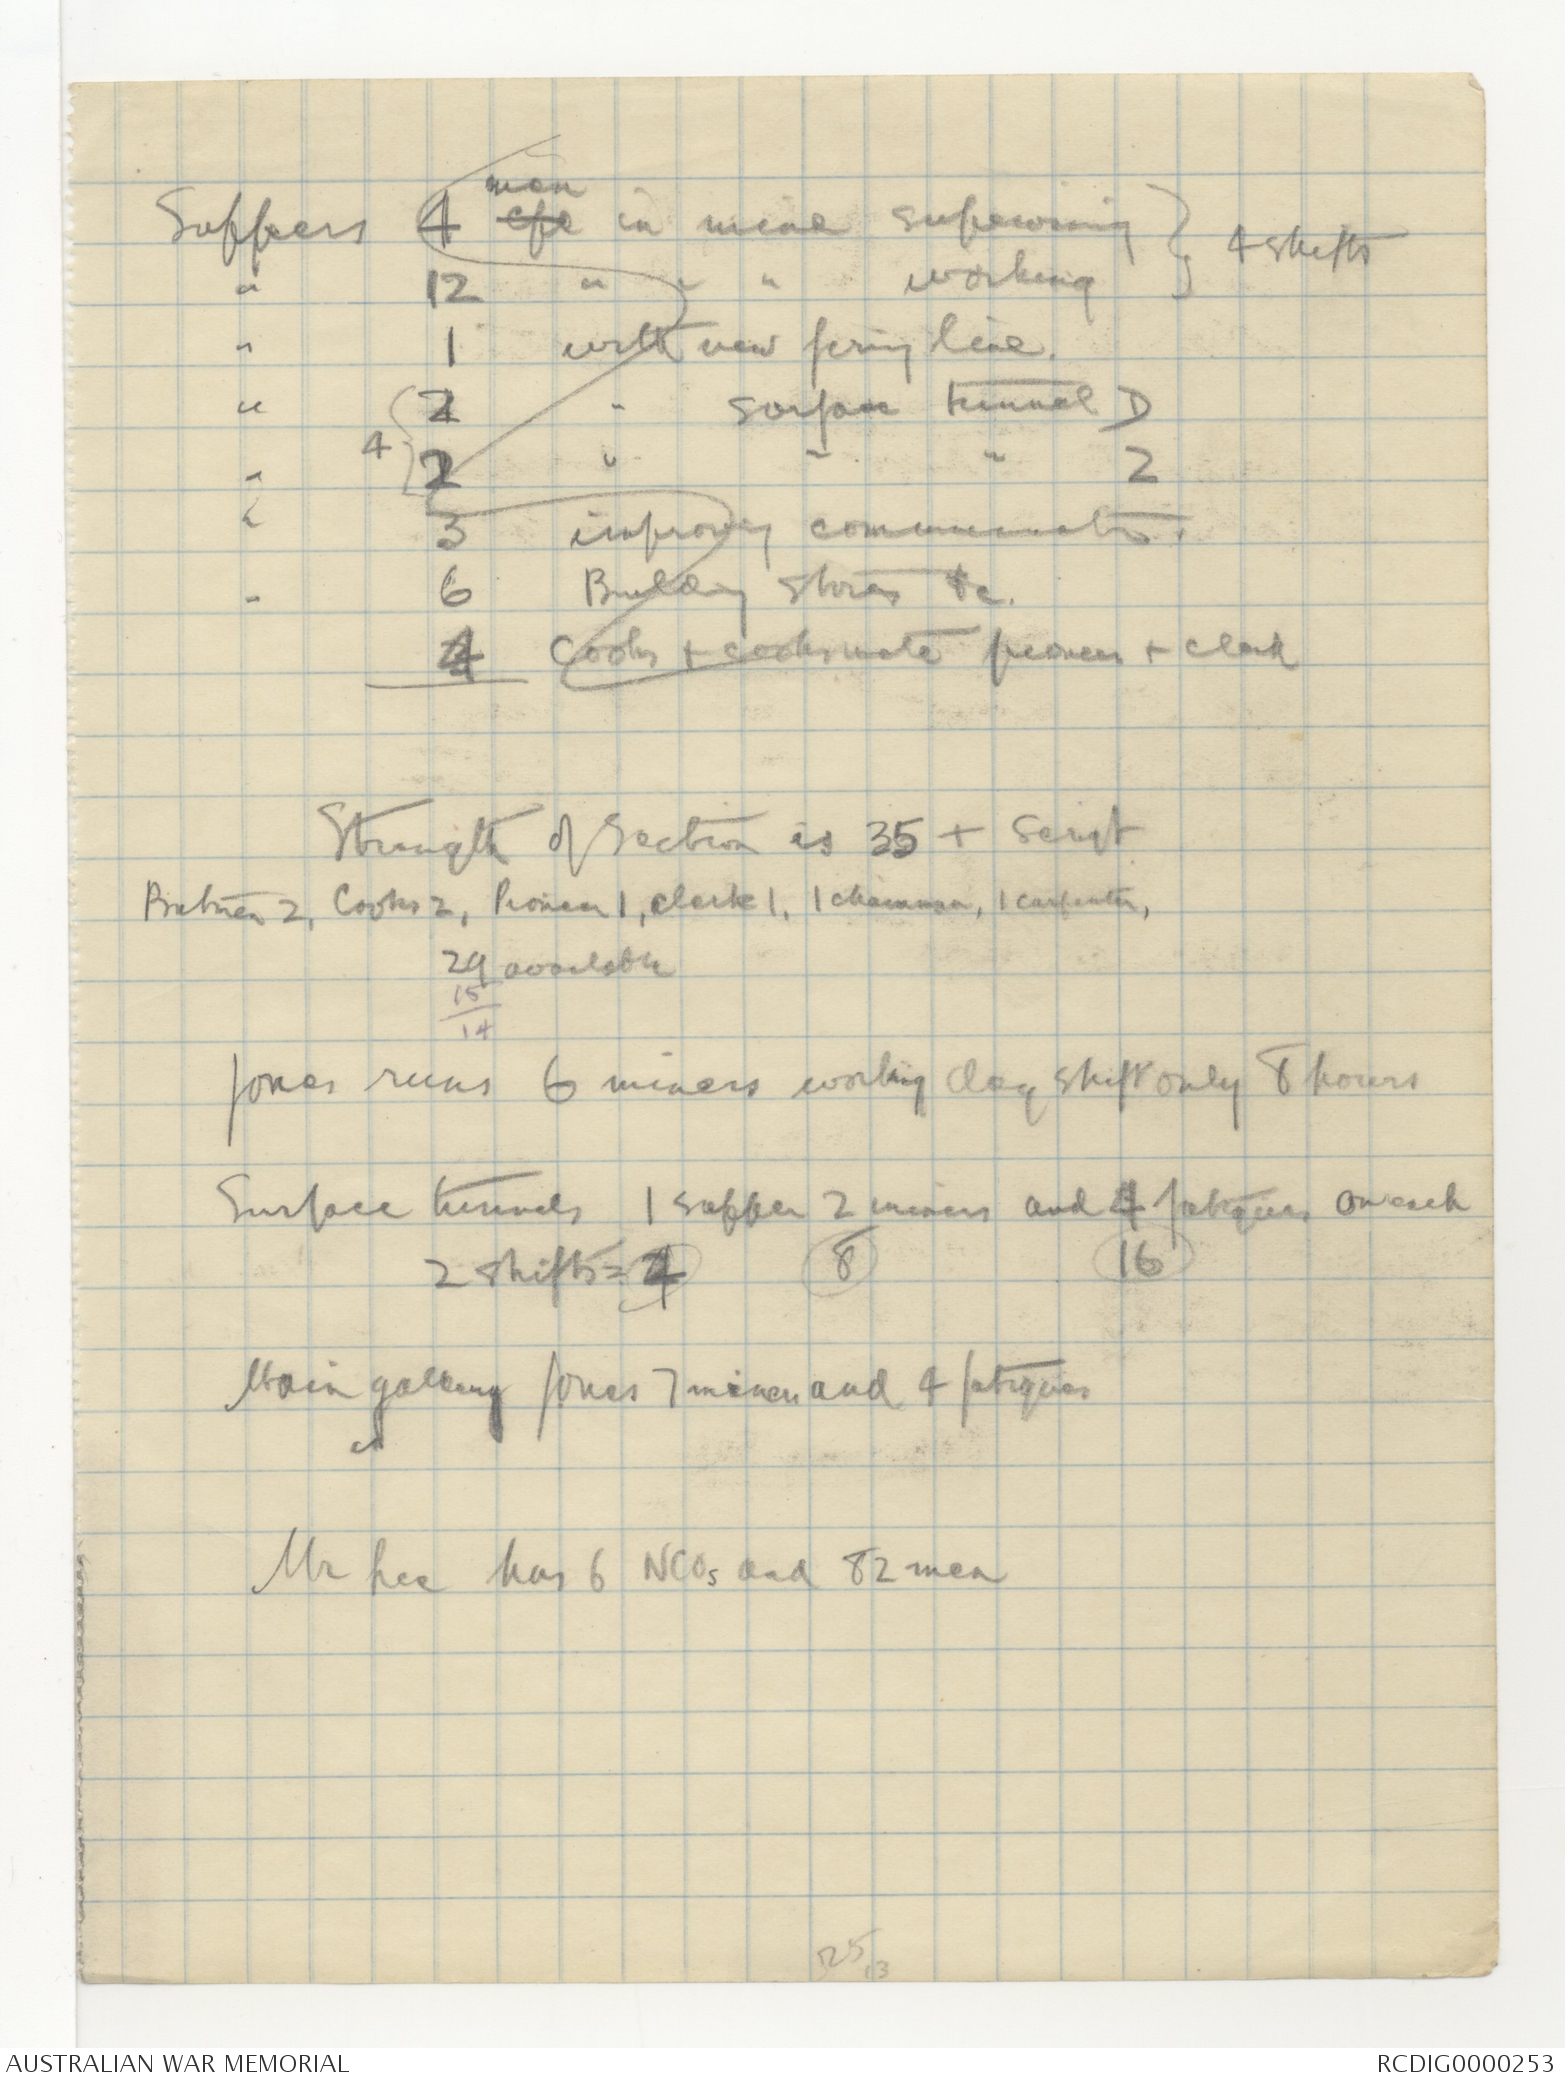 men
Sappers 4 cpl in mine supervising } 4 shifts
" 12 " " " working
" 1 with new firing line.
" 2 " surface tunnel D
4 {
" 2 " " " 2
" 3 improving communicatns.
" 6 Building stores &c.
4 Cooks + cooksmate pioneer + clerk
Strength of Section is 35 + Sergt
Batmen 2, Cooks 2, Pioneer 1, clerk 1, 1 chainman, 1 carpenter,
29 available
15
14
Jones runs 6 miners working day shift only 8 hours
Surface tunnels 1 sapper 2 miners and 4 fatigues on each
2 shifts = 4 8 16
Main gallery Jones 7 miners and 4 fatigues
Mr has 6 NCOs and 82 men
AUSTRALIAN WAR MEMORIAL
RCDIG0000253